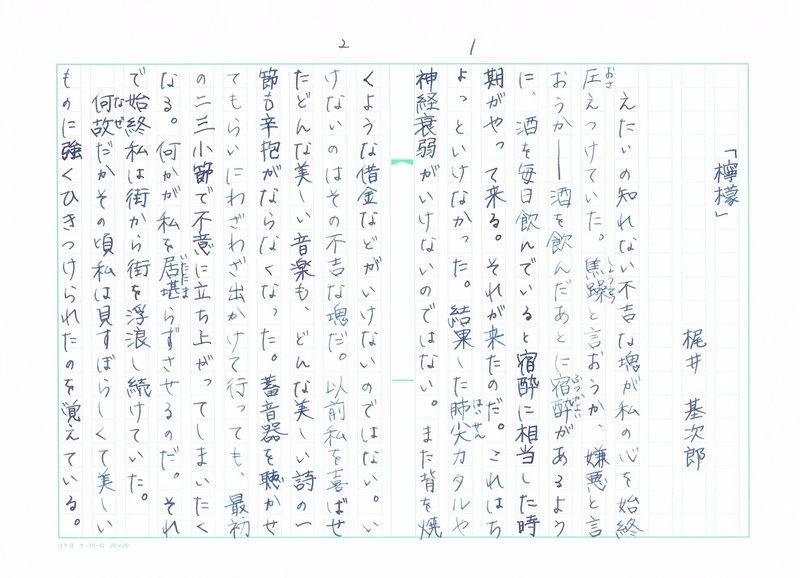 1
「檸檬」
梶井 基次郎
えたいの知れない不吉な塊が私の心を始終
おさ
圧えつけていた。焦躁と言おうか、嫌悪と言
しょうそう
おうか――酒を飲んだあとに宿酔があるよう
ふつかよい
に、酒を毎日飲んでいると宿酔に相当した時
期がやって来る。それが来たのだ。これはち
ょっといけなかった。結果した肺尖カタルや
はいせん
神経衰弱がいけないのではない。また背を焼
2
くような借金などがいけないのではない。い
けないのはその不吉な塊だ。以前私を喜ばせ
たどんな美しい音楽も、どんな美しい詩の一
節も辛抱がならなくなった。蓄音器を聴かせ
てもらいにわざわざ出かけて行っても、最初
の二三小節で不意に立ち上がってしまいたく
なる。何かが私を居堪らずさせるのだ。それ
いたたま
で始終私は街から街を浮浪し続けていた。
何故だかその頃私は見すぼらしくて美しい
なぜ
ものに強くひきつけられたのを覚えている。
コクヨ ケ-10-G 20×20